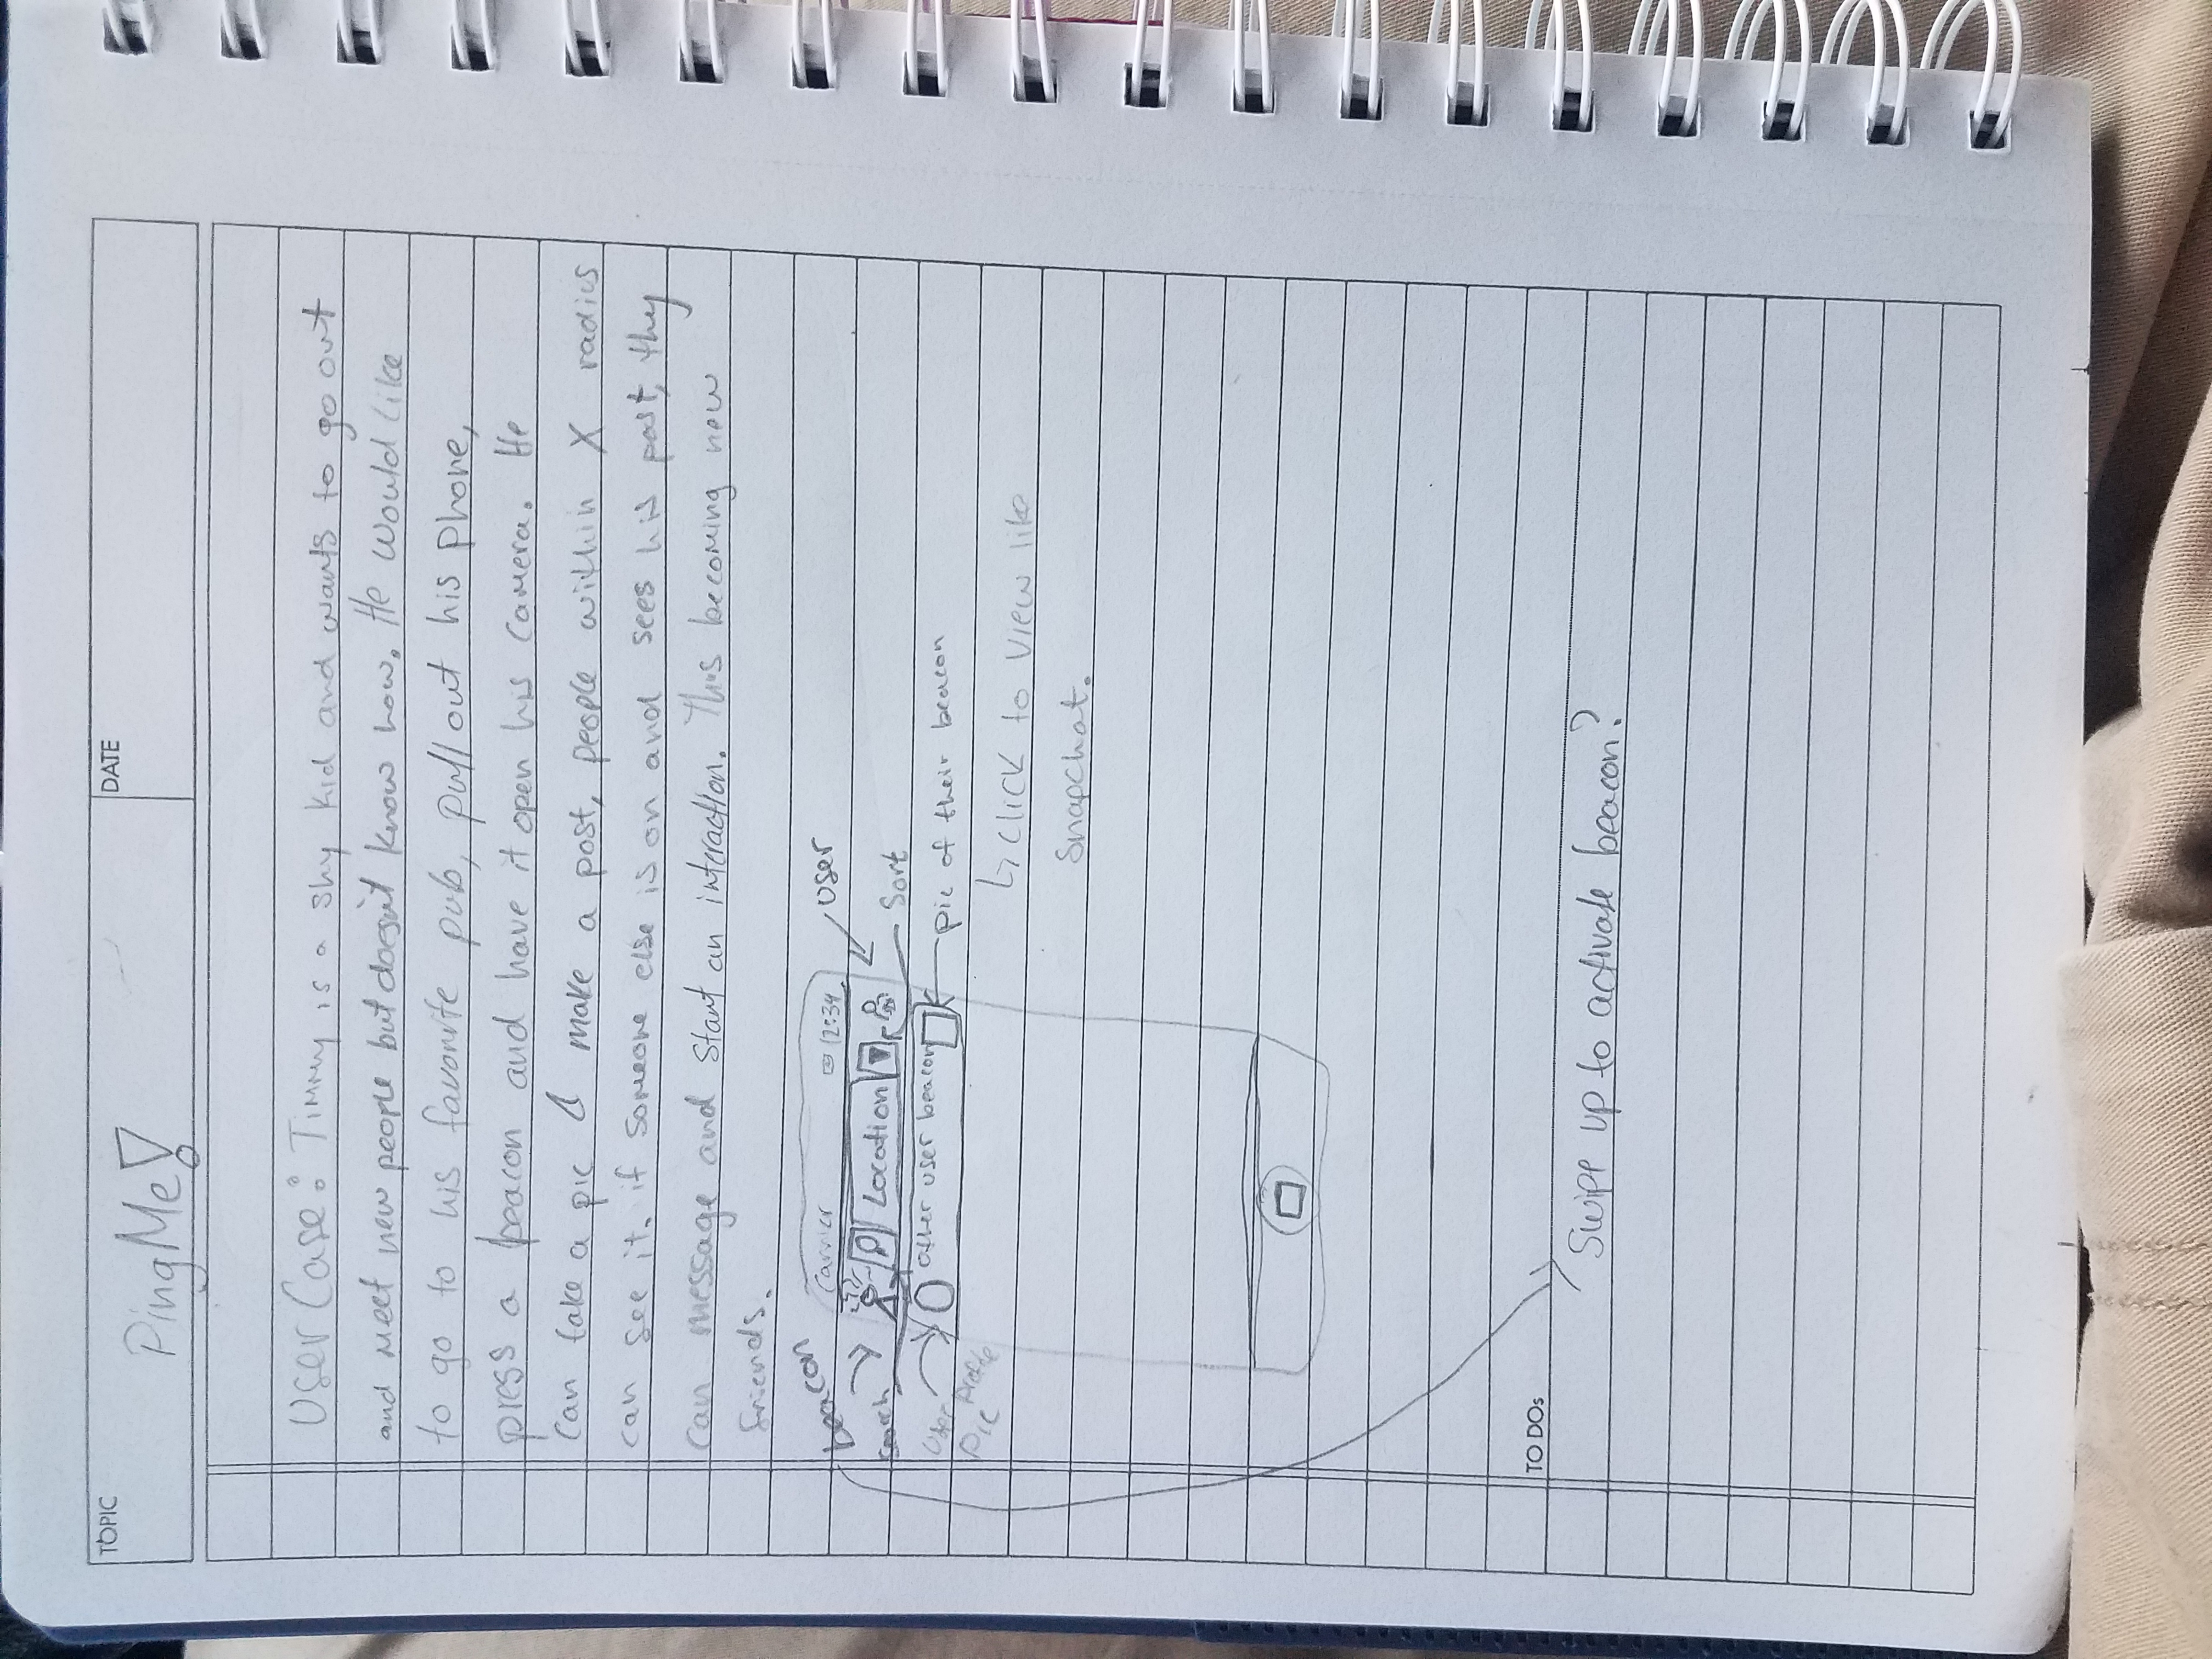 TOPIC
PingMe!
DATE
User Case: Timmy is a shy kid and wants to go out
and meet new people but doesn't know how. He would like
to go to his favorite pub, pull out his phone,
press a beacon and have it open his camera. He
can take a pic & make a post, people within X radius
can see it. if someone else is on and sees his post, they
can message and start an interaction. Thus becoming new
friends.
beacon
Carrier 12:34
user
search
Location
Sort
User Profile
Pic
other user beacon
pic of their beacon
↳ click to view like
Snapchat.
TO DOs
Swipe up to activate beacon?